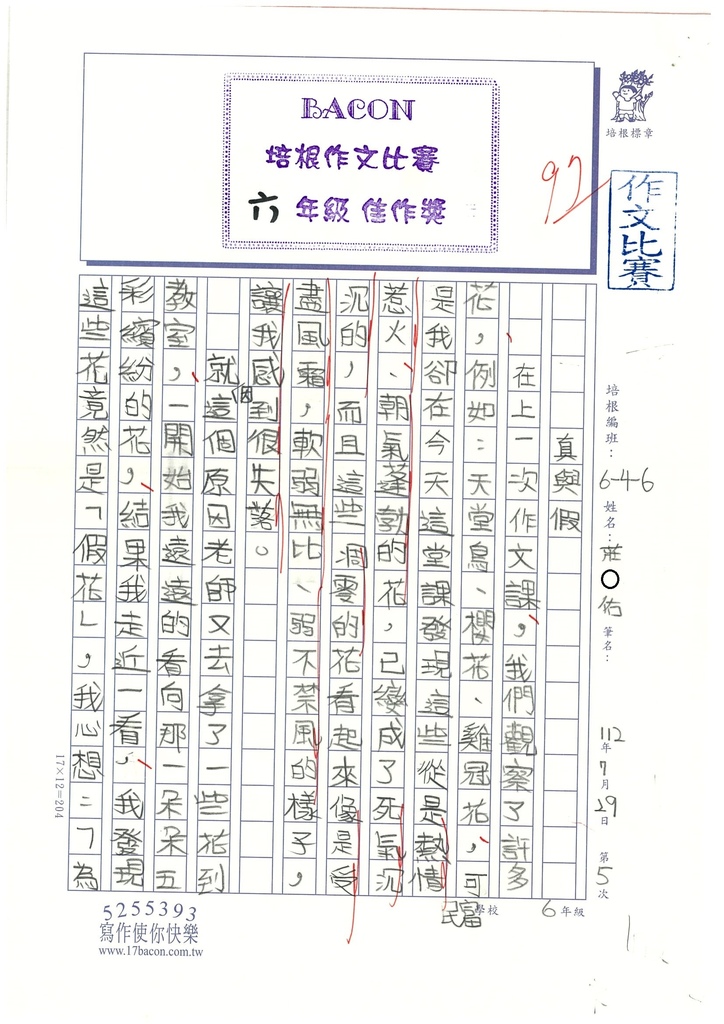 BACON
培根作文比賽
六年級 佳作獎
培根標章
92
作文比賽
培根編班：6-4-6
姓名：莊○佑
筆名：
112年7月29日
第5次
民富 學校 6年級
真與假
在上一次作文課，我們觀察了許多
花，例如：天堂鳥、櫻花、雞冠花，可
是我卻在今天這堂課發現這些從是熱情
惹火、朝氣蓬勃的花，已變成了死氣沉
沉的，而且這些凋零的花看起來像是受
盡風霜，軟弱無比、弱不禁風的樣子，
讓我感到很失落。
就因這個原因老師又去拿了一些花到
教室，一開始我遠遠的看向那一朵朵五
彩繽紛的花，結果我走近一看，我發現
這些花竟然是「假花」，我心想：「為
17×12=204
5255393
寫作使你快樂
www.17bacon.com.tw